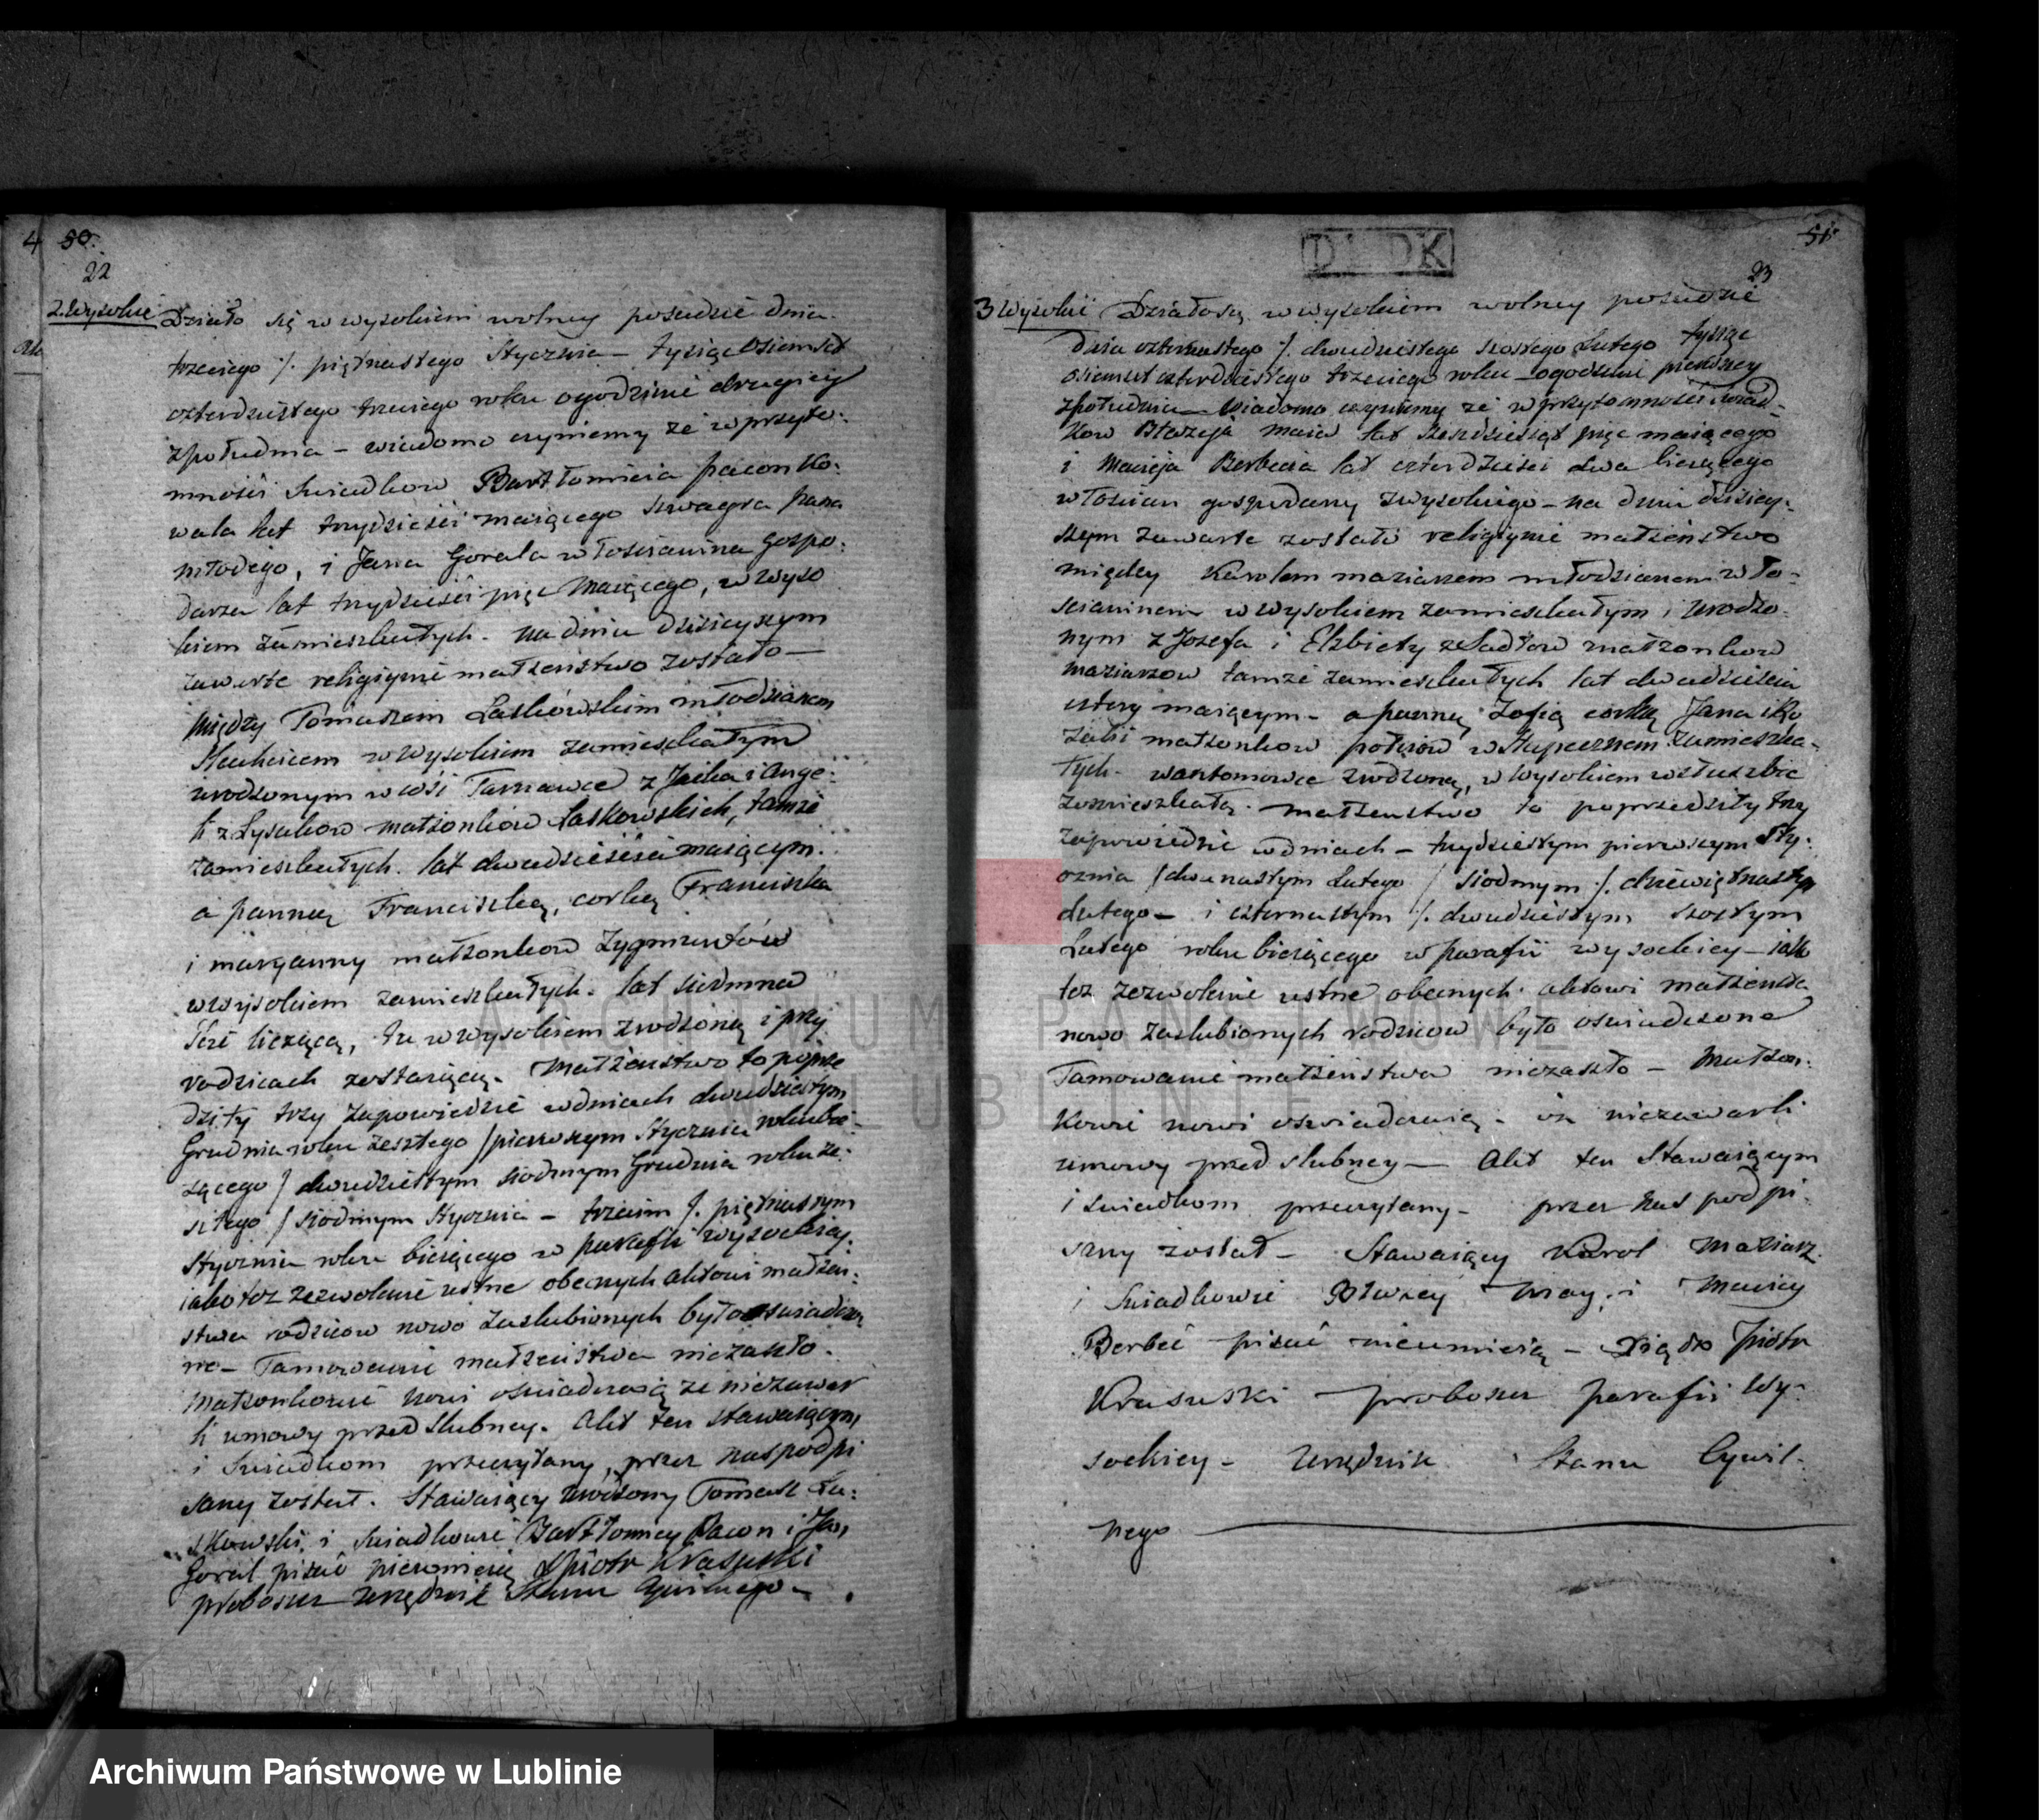 4 50.
22
2. Wysokie Działo się w wysokiem wolney posadzie dnia
trzeciego /. piętnastego Stycznia – tysiąc osiemset
czterdziestego trzeciego roku o godzinie drugiey
z południa – wiadomo czyniemy że w przyto:
mności Swiadkow Bartłomieia pacon ko:
wala lat trzydzieści maiącego szwagra pana
młodego, i Jana Gorala włościanina Gospo:
darza lat trzydzieści pięc Maiącego, w wyso
kiem zamieszkałych. na dniu dzisieyszym
zawarte religiynie małżeństwo zostało –
Między Tomaszem Laskowskim młodzianem
w wysokiem zamieszkałym
urodzonym w wsi Tarnawce z Jacka i Ange:
li z Łysakow małżonkow Łaskowskich, tamże
zamieszkałych. lat dwadzieścia maiącym.
a panną Franciszką, corką Franciszka
i maryanny małżonkow Zygmuntów
w wysokiem zamieszkałych. lat siedmna
scie liczącą, tu w wysokiem zrodzoną i przy
rodzicach zostaiącą. Małżeństwo to poprze
dziły trzy zapowiedzie w dniach dwudziestym
Grudnia roku zeszłego / pierwszym Stycznia roku bie:
żącego / dwudziestym siodmym Grudnia roku ze:
szłego / siodmym Stycznia – trzecim /. piętnastym
Stycznia roku bieżącego w parafii wysockiey.
iako tez zezwolenie ustne obecnych Aktowi małżeń:
stwa rodzicow nowo zaslubionych było oswiadczo
ne – Tamowanie małżeństwa niezaszło.
Małżonkowie nowi oswiadczaią ze niezawar
li umowy przedslubney. Akt ten stawaiącym,
i Swiadkom przeczytany, przez nas podpi
sany został. Stawaiący Tomasz La:
skowski, i swiadkowie Bartłomiey Pacon i Jan
Goral pisać nieumieią X piotr Krasuski
proboszcz urzędnik Stanu Cywilnego –
51
23
3 Wysokie Działo się w wysokiem wolney posadzie
Dnia czternastego /. dwudziestego szostego Lutego tysiąc
osiemset czterdziestego trzeciego roku – o godzinie pierwszey
z południa – wiadomo czyniemy że w przytomności swiad-
kow Błazeja lat szescdziesiąt pięc maiącego
i Macieja Berbecia lat czterdzieści dwa liczącego
włoscian gospodarzy z wysokiego – na dniu dzisiey:
szym zawarte zostało religiynie małżeństwo
między Karolem maziarzem młodzianem wło-
scianinem w wysokiem zamieszkałym i urodzo-
nym z Jozefa i Elzbiety z Sadłow małżonkow
maziarzow tamże zamieszkałych lat dwadzieścia
cztery maiącym – a panną Zofią corką Jana i Ro
zalii małżonkow w Słupecznem zamieszka-
łych. zrodzoną, w wysokiem w służbie
zamieszkałą. małżeństwo to poprzedziły trzy
zapowiedzie w dniach – trzydziestym pierwszym Sty:
cznia / dwunastym Lutego / siodmym /. dziewiętnastym
Lutego – i czternastym /. dwudziestym szostym
Lutego roku bieżącego w parafii wysockiey – iako
tez zezwolenie ustne obecnych aktowi małżeństwa
nowo zaslubionych rodzicow było oswiadczone
Tamowanie małżeństwa niezaszło – Małżon:
kowie nowi oswiadczaią – iz niezawarli
umowy przedslubney – Akt ten Stawaiącym
i swiadkom przeczytany – przez nas podpi
sany został – Stawaiący Karol Maziarz
i Swiadkowie Błażey i Maciey
Berbeć pisać nieumieią – Xiądz Piotr
Krasuski proboszcz parafii Wy-
sockiey – Urzędnik Stanu Cywil-
nego
ARCHIWUM PAŃSTWOWE
W LUBLINIE
Archiwum Państwowe w Lublinie